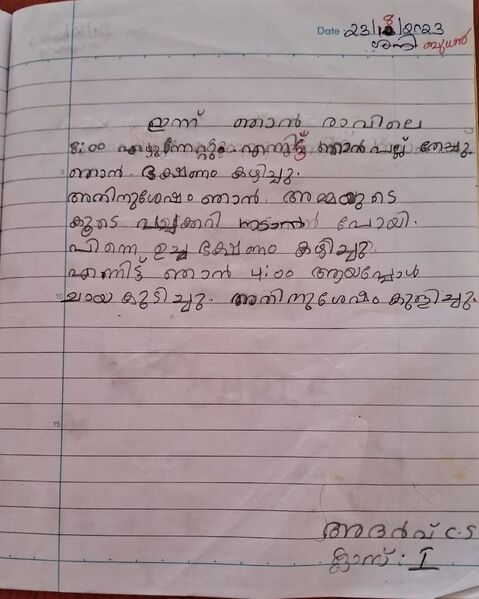 Date 23/8/2023
ശനി ബുധൻ
ഇന്ന് ഞാൻ രാവിലെ
8:00 എഴുന്നേറ്റു. എന്നിട്ട് ഞാൻ പല്ല് തേച്ചു.
ഞാൻ ഭക്ഷണം കഴിച്ചു.
അതിനുശേഷം ഞാൻ അമ്മയുടെ
കൂടെ പച്ചക്കറി നടാൻ പോയി.
പിന്നെ ഉച്ച ഭക്ഷണം കഴിച്ചു.
എന്നിട്ട് ഞാൻ 4:00 ആയപ്പോൾ
10 ചായ കുടിച്ചു. അതിനുശേഷം കുളിച്ചു.
15
അദർവ് C.S
ക്ലാസ് : I